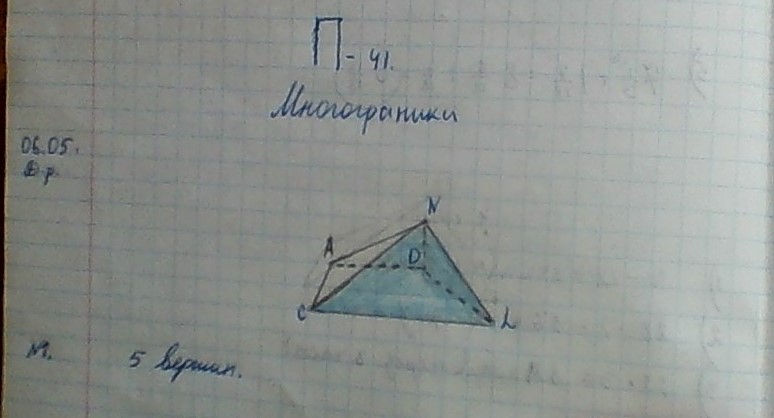 П-41.
Многограники
06.05.
Д.р
N
A
D
C
L
М.
5 вершин.